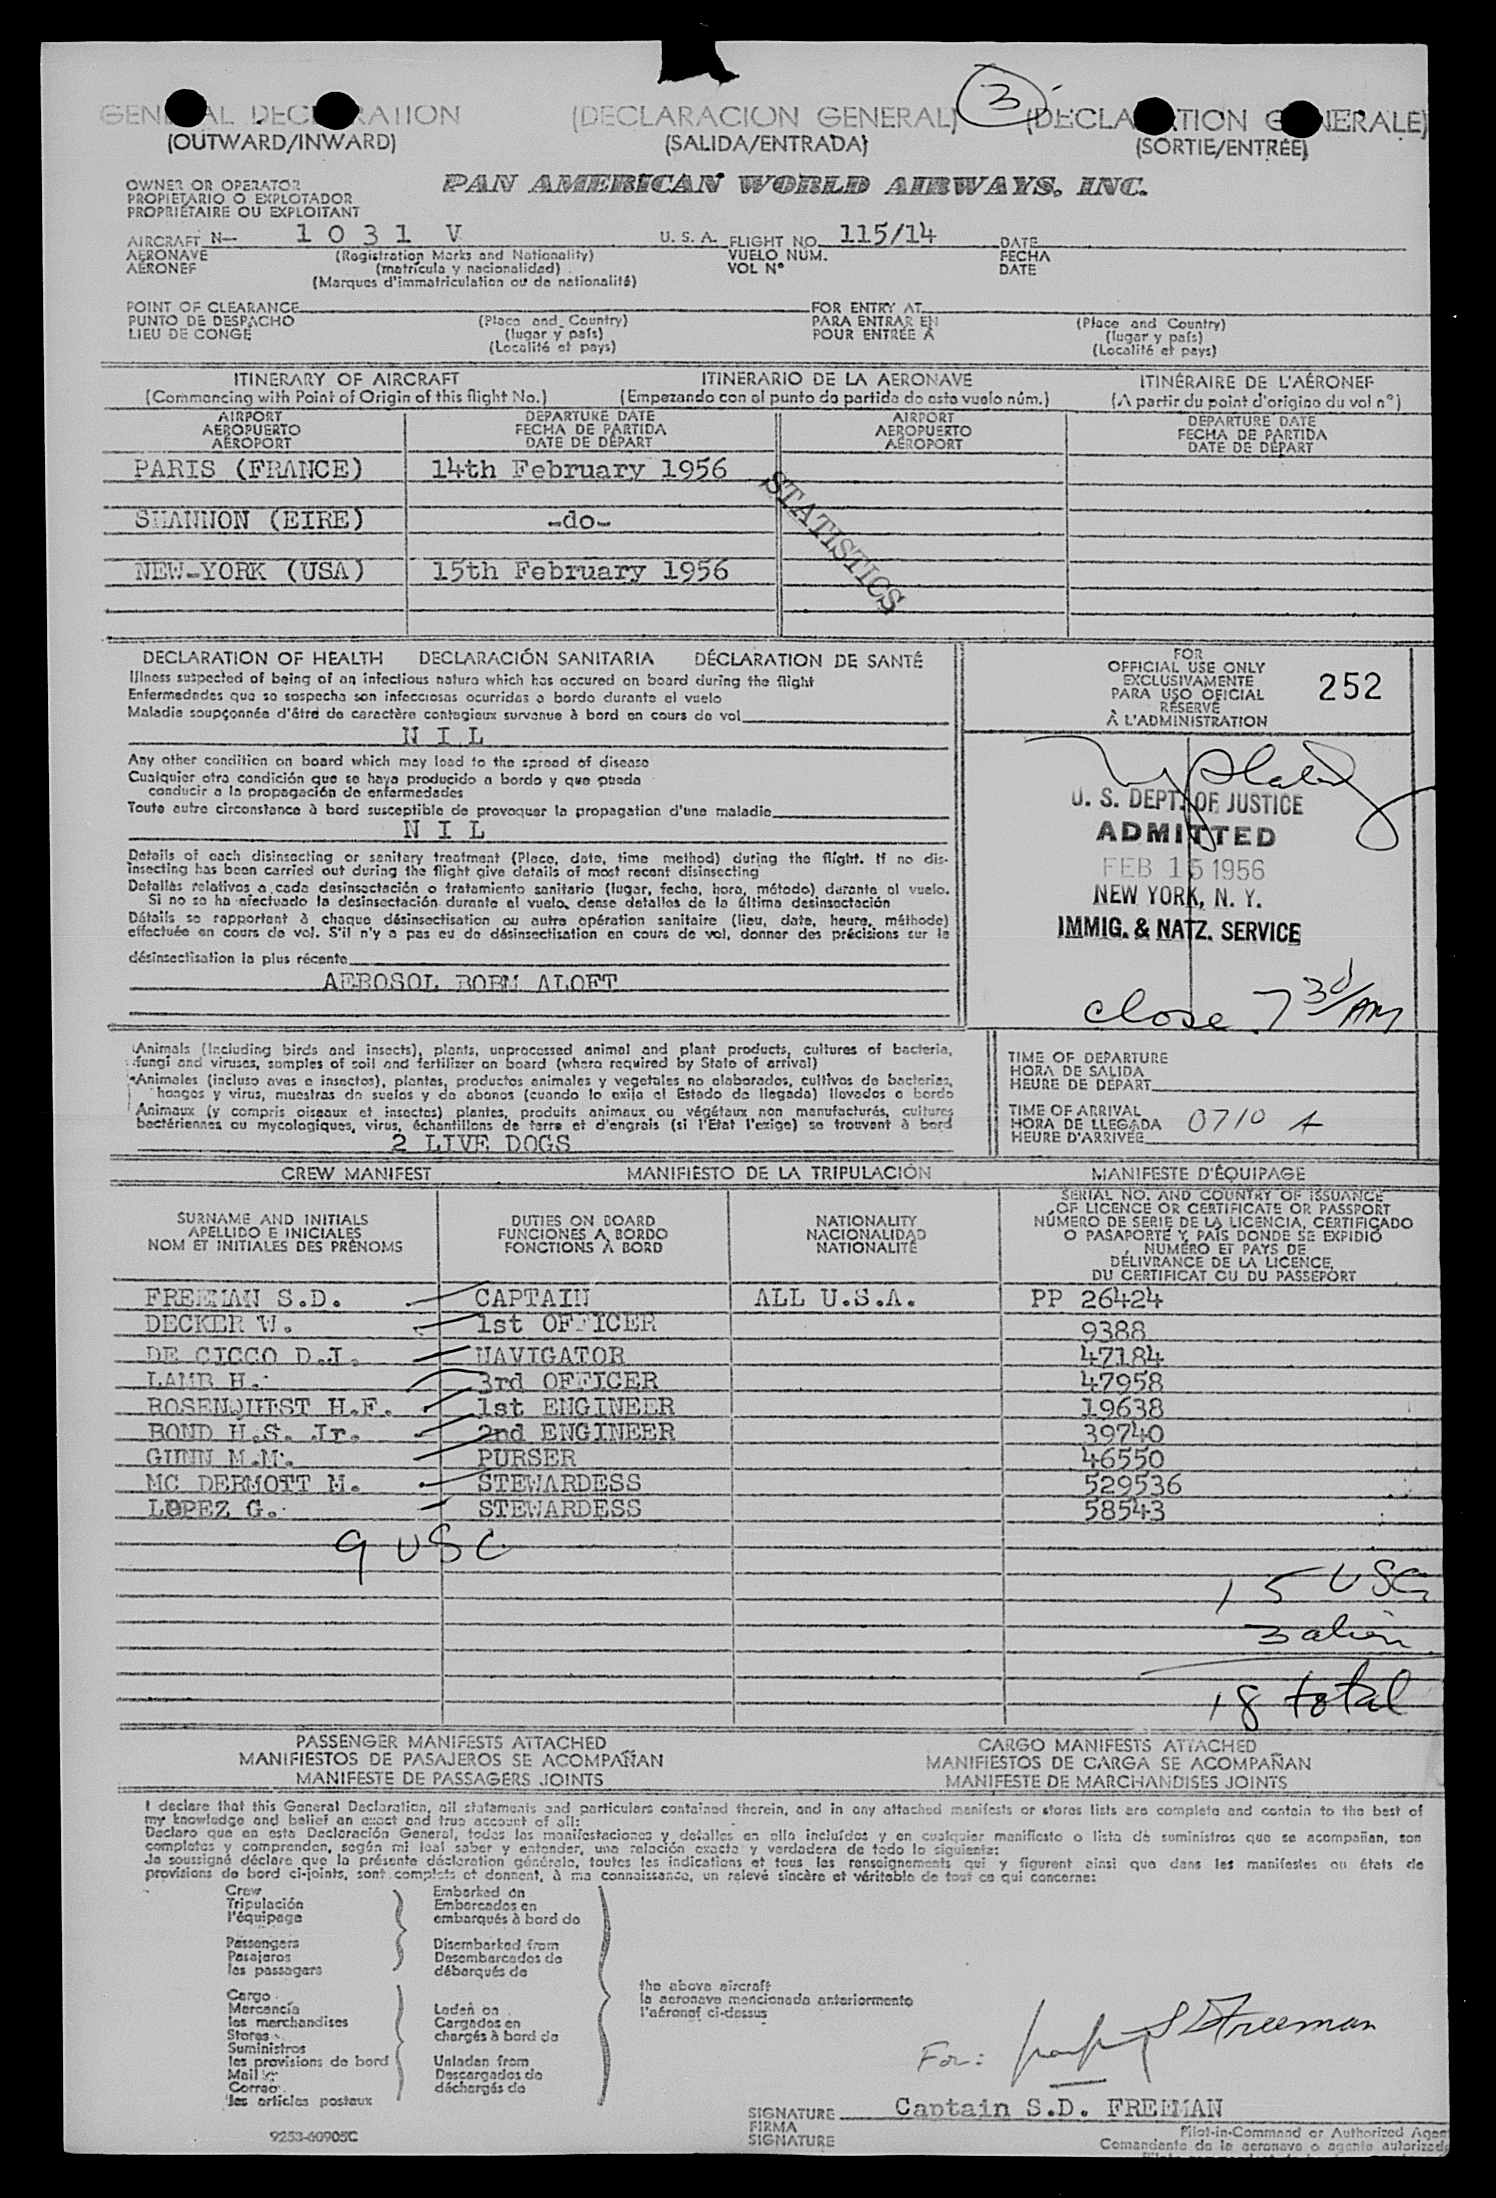 3
GENERAL DECLARATION (DECLARACION GENERAL) (DECLARATION GENERALE)
(OUTWARD/INWARD) (SALIDA/ENTRADA) (SORTIE/ENTRÉE)
OWNER OR OPERATOR
PROPIETARIO O EXPLOTADOR
PROPRIÉTAIRE OU EXPLOITANT
PAN AMERICAN WORLD AIRWAYS, INC.
AIRCRAFT N— 1 0 3 1 V U. S. A. FLIGHT NO. 115/14 DATE
AERONAVE (Registration Marks and Nationality) VUELO NUM. FECHA
AÉRONEF (matrícula y nacionalidad) VOL N° DATE
(Marques d'immatriculation ou de nationalité)
POINT OF CLEARANCE FOR ENTRY AT
PUNTO DE DESPACHO (Place and Country) PARA ENTRAR EN (Place and Country)
LIEU DE CONGE (lugar y país) POUR ENTRÉE A (lugar y país)
(Localité et pays) (Localité et pays)
ITINERARY OF AIRCRAFT ITINERARIO DE LA AERONAVE ITINÉRAIRE DE L'AÉRONEF
(Commencing with Point of Origin of this flight No.) (Empezando con el punto de partida de este vuelo núm.) (A partir du point d'origine du vol n°)
AIRPORT DEPARTURE DATE AIRPORT DEPARTURE DATE
AEROPUERTO FECHA DE PARTIDA AEROPUERTO FECHA DE PARTIDA
AÉROPORT DATE DE DÉPART AÉROPORT DATE DE DÉPART
PARIS (FRANCE) 14th February 1956
STATISTICS
SHANNON (EIRE) -do-
NEW-YORK (USA) 15th February 1956
DECLARATION OF HEALTH DECLARACIÓN SANITARIA DÉCLARATION DE SANTÉ
Illness suspected of being of an infectious nature which has occured on board during the flight
Enfermedades que se sospecha son infecciosas ocurridas a bordo durante el vuelo
Maladie soupçonnée d'être de caractère contagieux survenue à bord en cours de vol
N I L
Any other condition on board which may lead to the spread of disease
Cualquier otra condición que se haya producido a bordo y que pueda
conducir a la propagación de enfermedades
Toute autre circonstance à bord susceptible de provoquer la propagation d'une maladie
N I L
Details of each disinsecting or sanitary treatment (Place, date, time method) during the flight. If no dis-
insecting has been carried out during the flight give details of most recent disinsecting
Detalles relativos a cada desinsectación o tratamiento sanitario (lugar, fecha, hora, método) durante el vuelo.
Si no se ha efectuado la desinsectación durante el vuelo, dense detalles de la última desinsectación
Détails se rapportant à chaque désinsectisation ou autre opération sanitaire (lieu, date, heure, méthode)
effectuée en cours de vol. S'il n'y a pas eu de désinsectisation en cours de vol, donner des précisions sur la
désinsectisation la plus récente
AEROSOL BOMB ALOFT
FOR
OFFICIAL USE ONLY
EXCLUSIVAMENTE
PARA USO OFICIAL
RÉSERVÉ
À L'ADMINISTRATION
252
U. S. DEPT. OF JUSTICE
ADMITTED
FEB 15 1956
NEW YORK, N. Y.
IMMIG. & NATZ. SERVICE
close 7 30/AM
Animals (including birds and insects), plants, unprocessed animal and plant products, cultures of bacteria,
fungi and viruses, samples of soil and fertilizer on board (where required by State of arrival)
Animales (incluso aves e insectos), plantas, productos animales y vegetales no elaborados, cultivos de bacterias,
hongos y virus, muestras de suelos y de abonos (cuando lo exija el Estado de llegada) llevados a bordo
Animaux (y compris oiseaux et insectes) plantes, produits animaux ou végétaux non manufacturés, cultures
bactériennes ou mycologiques, virus, échantillons de terre et d'engrais (si l'Etat l'exige) se trouvant à bord
2 LIVE DOGS
TIME OF DEPARTURE
HORA DE SALIDA
HEURE DE DÉPART
TIME OF ARRIVAL
HORA DE LLEGADA 0710 A
HEURE D'ARRIVÉE
CREW MANIFEST MANIFIESTO DE LA TRIPULACIÓN MANIFESTE D'ÉQUIPAGE
SURNAME AND INITIALS
APELLIDO E INICIALES
NOM ET INITIALES DES PRÉNOMS
DUTIES ON BOARD
FUNCIONES A BORDO
FONCTIONS À BORD
NATIONALITY
NACIONALIDAD
NATIONALITÉ
SERIAL NO. AND COUNTRY OF ISSUANCE
OF LICENCE OR CERTIFICATE OR PASSPORT
NÚMERO DE SERIE DE LA LICENCIA, CERTIFICADO
O PASAPORTE Y PAÍS DONDE SE EXPIDIÓ
NUMÉRO ET PAYS DE
DÉLIVRANCE DE LA LICENCE,
DU CERTIFICAT OU DU PASSEPORT
FREEMAN S.D. CAPTAIN ALL U.S.A. PP 26424
DECKER W. 1st OFFICER 9388
DE CICCO D.J. NAVIGATOR 47184
LAMB H. 3rd OFFICER 47958
ROSENQUIST H.F. 1st ENGINEER 19638
BOND H.S. Jr. 2nd ENGINEER 39740
GUNN M.M. PURSER 46550
MC DERMOTT M. STEWARDESS 529536
LOPEZ G. STEWARDESS 58543
9 USC
15 USC
3 alien
18 total
PASSENGER MANIFESTS ATTACHED CARGO MANIFESTS ATTACHED
MANIFIESTOS DE PASAJEROS SE ACOMPAÑAN MANIFIESTOS DE CARGA SE ACOMPAÑAN
MANIFESTE DE PASSAGERS JOINTS MANIFESTE DE MARCHANDISES JOINTS
I declare that this General Declaration, all statements and particulars contained therein, and in any attached manifests or stores lists are complete and contain to the best of
my knowledge and belief an exact and true account of all:
Declaro que en esta Declaración General, todas las manifestaciones y detalles en ella incluídos y en cualquier manifiesto o lista de suministros que se acompañan, son
completos y comprenden, según mi leal saber y entender, una relación exacta y verdadera de todo lo siguiente:
Je soussigné déclare que la présente déclaration générale, toutes les indications et tous les renseignements qui y figurent ainsi que dans les manifestes ou états de
provisions de bord ci-joints, sont complets et donnent, à ma connaissance, un relevé sincère et véritable de tout ce qui concerne:
Crew
Tripulación
l'équipage
Passengers
Pasajeros
les passagers
Cargo
Mercancía
les marchandises
Stores
Suministros
les provisions de bord
Mail
Correo
les articles postaux
Embarked on
Embarcados en
embarqués à bord de
Disembarked from
Desembarcados de
débarqués de
Laden on
Cargados en
chargés à bord de
Unladen from
Descargados de
déchargés de
the above aircraft
la aeronave mencionada anteriormente
l'aéronef ci-dessus
For: S D Freeman
SIGNATURE Captain S.D. FREEMAN
FIRMA
SIGNATURE
Pilot-in-Command or Authorized Agen
Comandante de la aeronave o agente autorizado
9253-60905C